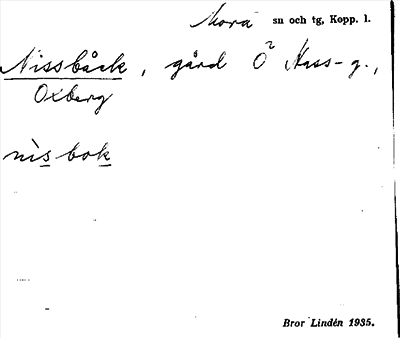 Mora sn och tg, Kopp. l.
Nissbåck, gård Ö² Hass-g.,
Oxberg
nìs bok
Bror Lindén 1935.